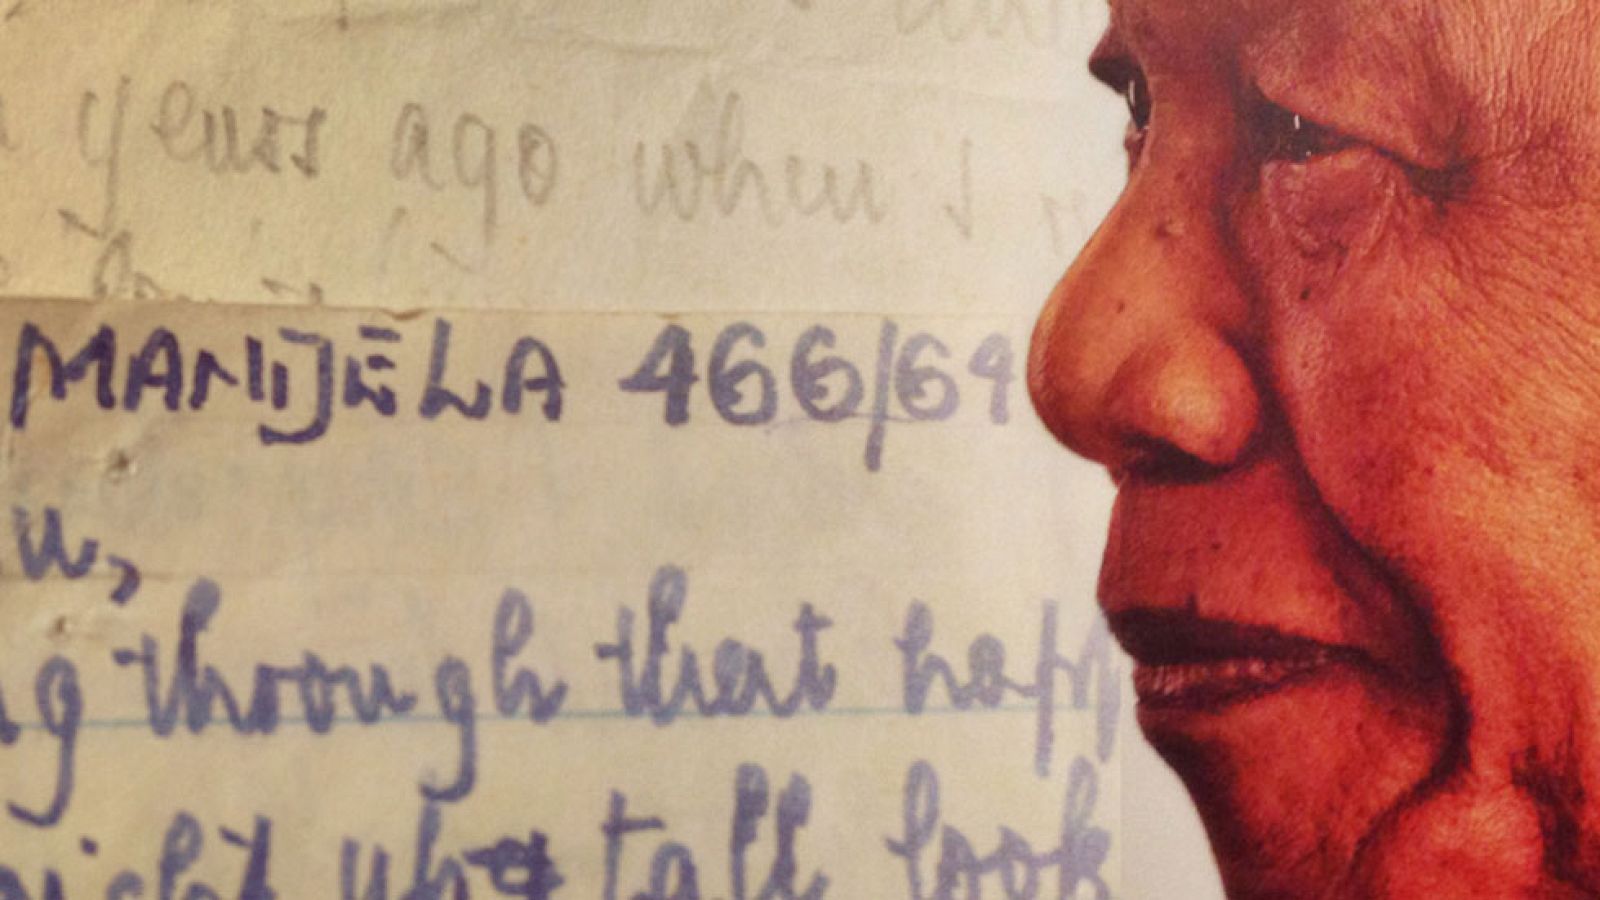 years ago when I
MANDELA 466/64
through that happ
tall look